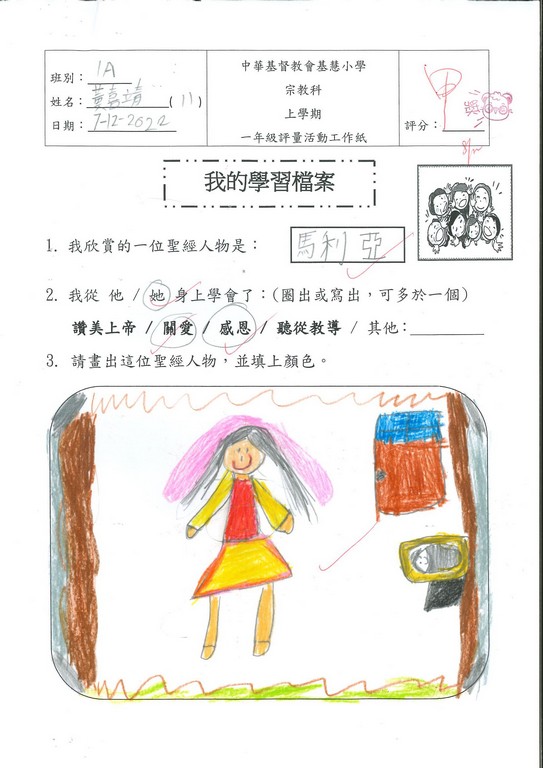 班別：1A
姓名：黃嘉靖(11)
日期：7-12-2022
中華基督教會基慧小學
宗教科
上學期
一年級評量活動工作紙
評分：甲
我的學習檔案
1. 我欣賞的一位聖經人物是： 馬利亞
2. 我從 他 / 她 身上學會了：(圈出或寫出，可多於一個)
讚美上帝 / 關愛 / 感恩 / 聽從教導 / 其他：
3. 請畫出這位聖經人物，並填上顏色。